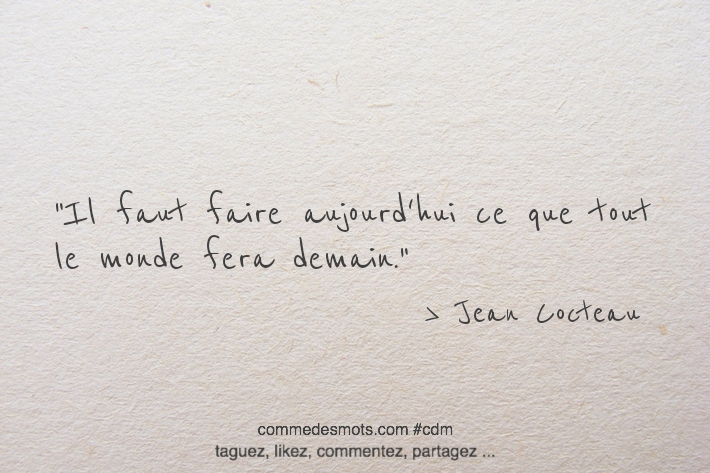 "Il faut faire aujourd'hui ce que tout
le monde fera demain."
> Jean Cocteau
commedesmots.com #cdm
taguez, likez, commentez, partagez ...